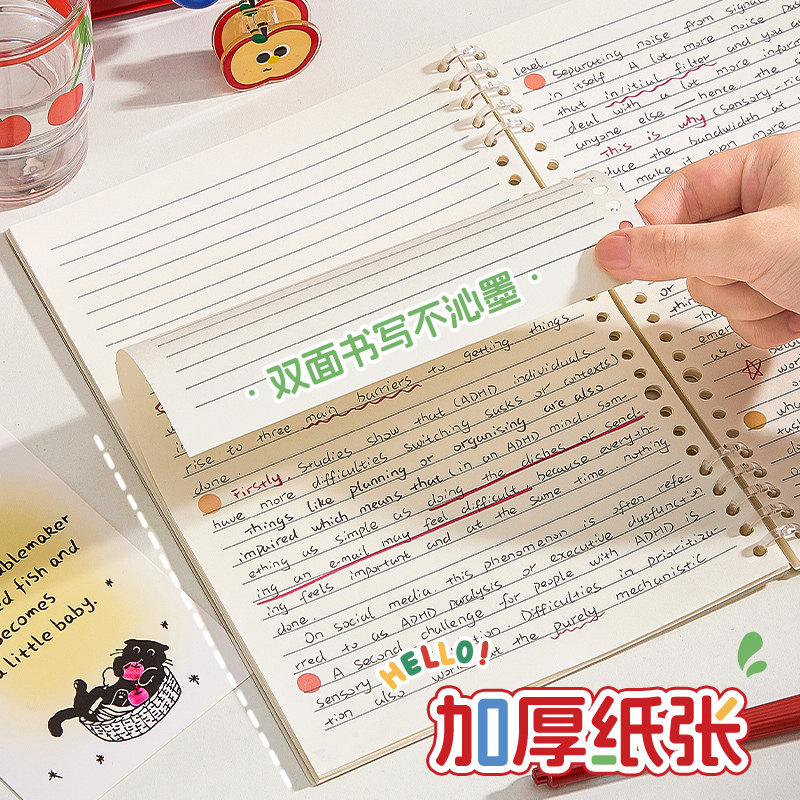 level.
Separating noise from signal
in itself A lot more noise
that in/itial filter and you a
deal with a lot more inform
anyone else — hence the
This is why (sensory-
duce the bandwidth at
make it even more
or
as
wor
·双面书写不沁墨·
to getting things
rise to three main barriers
done. Firstly, Studies show that (ADHD individuals
have more difficulties switching susks or contexts)
Things like planning or organising are also
impaired which means that (in an ADHD mind som-
ething as simple as doing the dishes or send-
ing an e-mail may feel difficult, because everyth-
ing feels important and at the same time nothing
done.
On social media this phenomenon is often refe-
rred to as ADHD paralysis or executive dysfunction
A second challenge for people with ADHD is
sensory Difficulties in prioritiza
tion also work at the purely mechanistic
blemaker
ed fish and
ecomes
a little baby.
HELLO!
加厚纸张